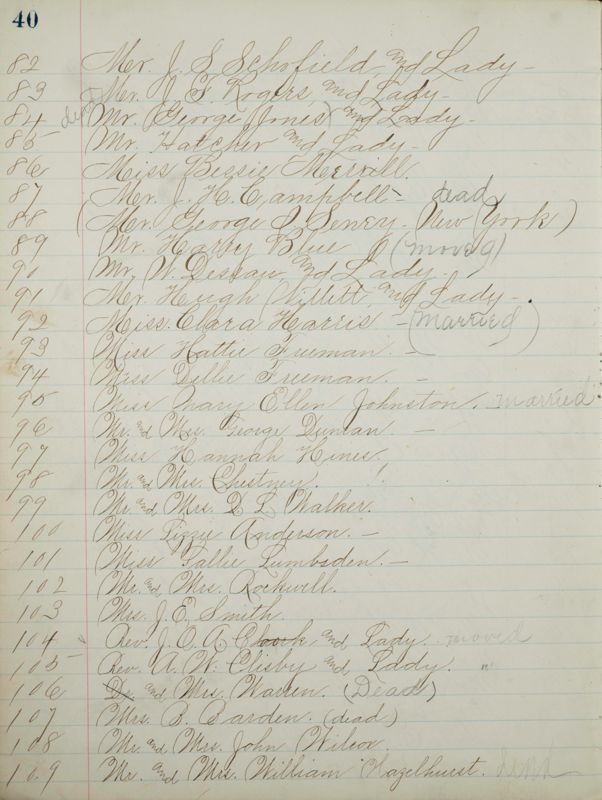 40
82 Mr. J. S. Schofield and Lady -
83 Mr. J. F. Rogers, and Lady -
84 dead Mr. George Jones and Lady -
85 Mr. Hatcher and Lady -
86 Miss Bessie Merrill.
87 Mr. J. H. Campbell - dead
88 (Mr. George S. Seney - New York)
89 Mr. Harry Blue (moved)
90 Mr. W. Dessau, and Lady -
91 Mr. Hugh Willett, and Lady -
92 Miss. Clara Harris - (Married)
93 Miss Hattie Freeman. -
94 Miss Dellie Freeman. -
95 Miss Mary Ellen Johnston. married
96 Mr. and Mrs. George Duncan. -
97 Miss Hannah Hines.
98 Mr. and Mrs. Chestney.
99 Mr. and Mrs. D. L. Walker.
100 Miss Lizzie Anderson. -
101 Miss Tallie Lumbsden. -
102 Mr. and Mrs. Rockwell.
103 Mrs. J. E. Smith.
104 Rev. J. O. A. and Lady. moved
105 Rev. A. W. Clisby and Lady. "
106 Dr and Mrs. Warren. (Dead)
107 Mrs. B. Barden. (dead)
108 Mr. and Mrs. John Wilcox.
109 Mr. and Mrs. William Hazelhurst.